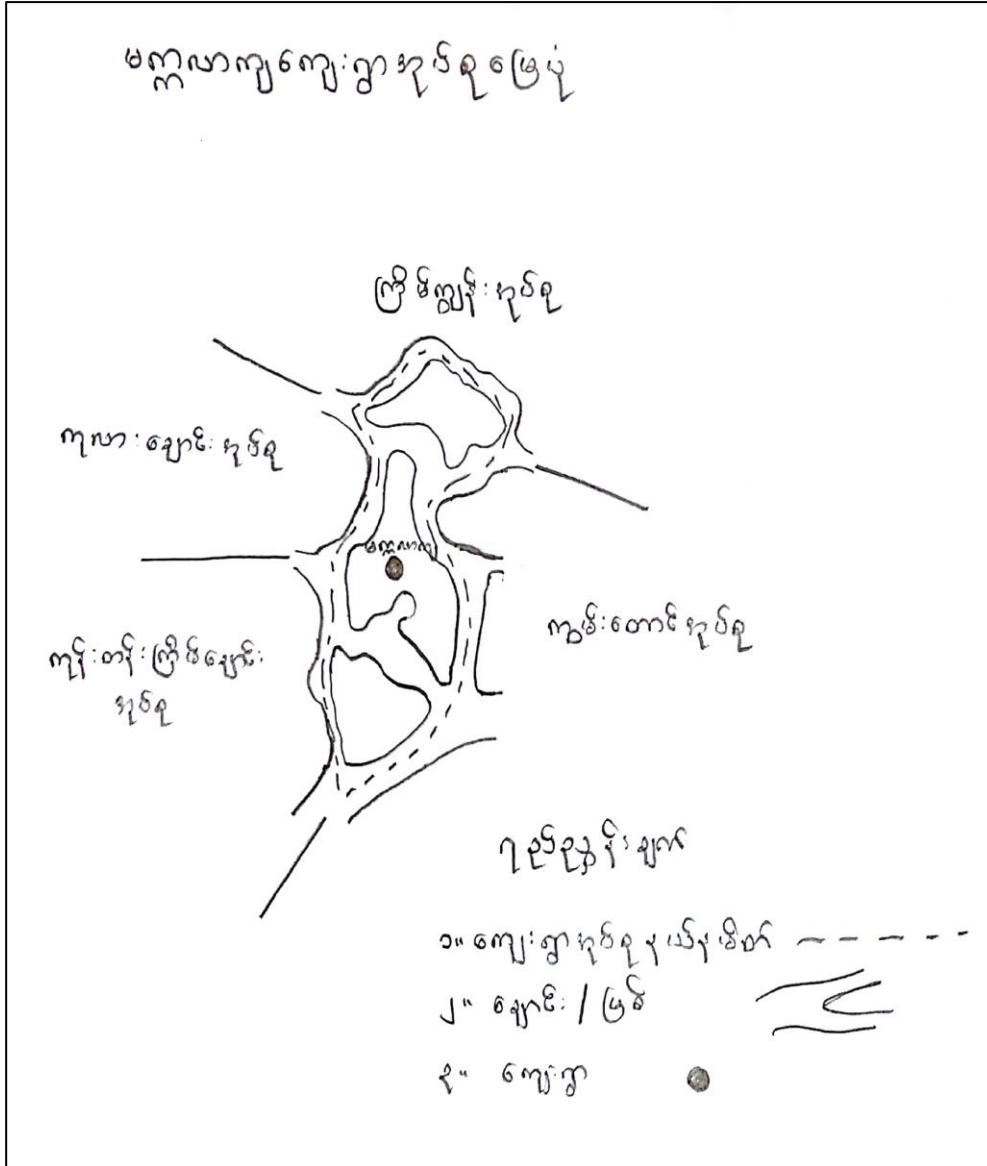 မက္ကလာကျကျေးရွာအုပ်စုမြေပုံ
ကြိမ်ကျွန်းအုပ်စု
ကုလားချောင်းအုပ်စု
မက္ကလာကျ
ကွမ်းတောင်အုပ်စု
ကုန်းတန်းကြိမ်ချောင်း
အုပ်စု
ရည်ညွှန်းချက်
၁။ ကျေးရွာအုပ်စုနယ်နမိတ်
၂။ ချောင်း / မြစ်
၃။ ကျေးရွာ